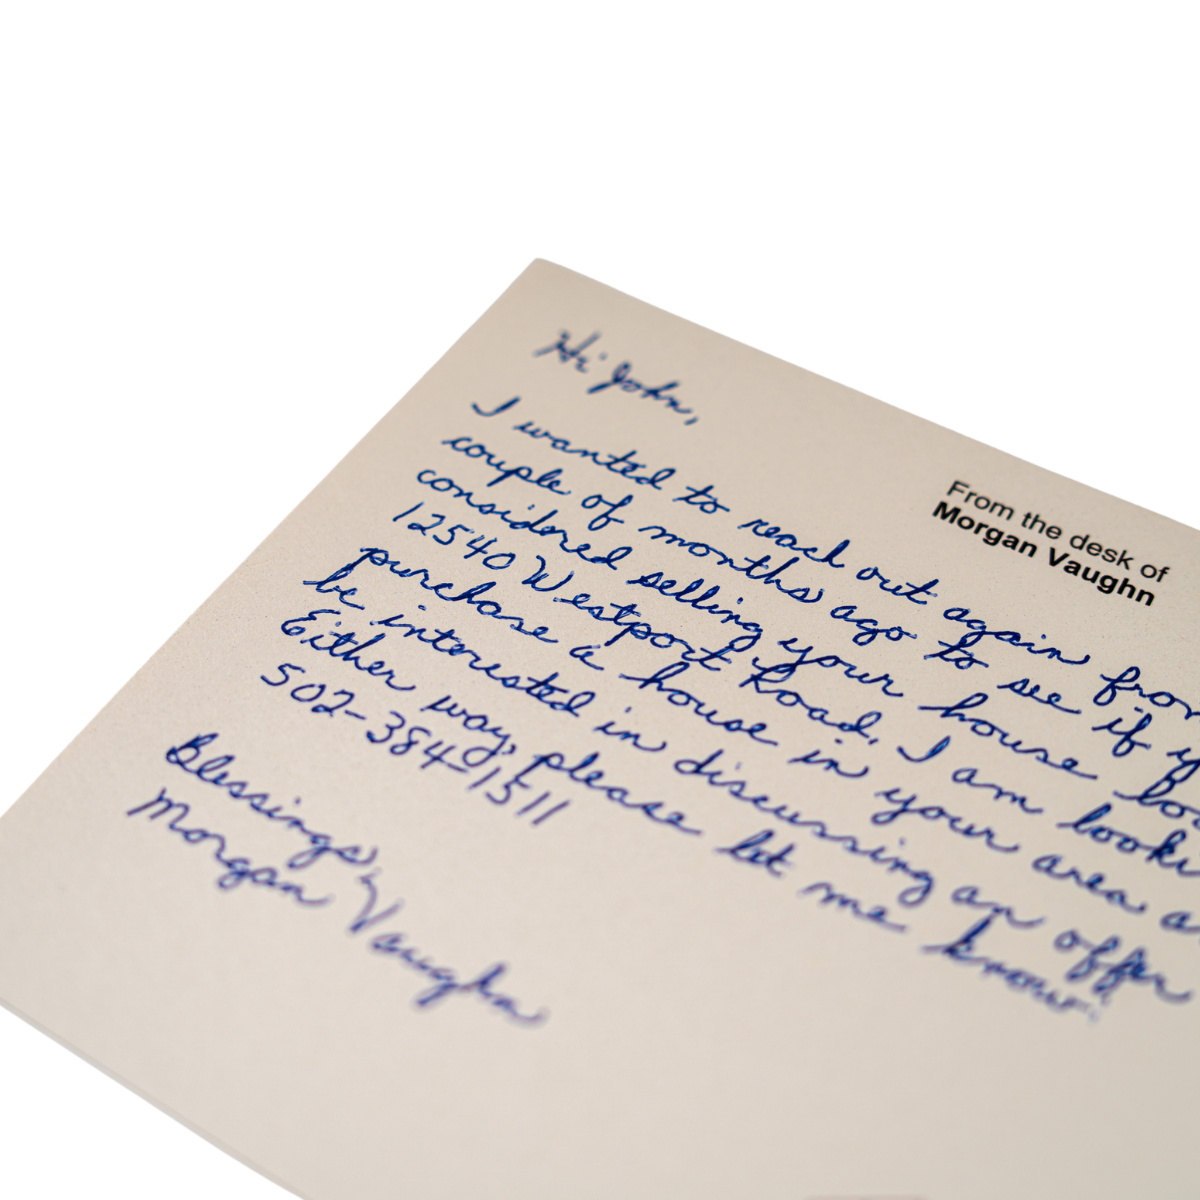 From the desk of
Morgan Vaughn
Hi John,
I wanted to reach out again from
couple of months ago to see if y
considered selling your house
12540 Westport Road. I am looki
purchase a house in your area
be interested in discussing an offer
Either way, please let me know!
502-384-1511
Blessings,
Morgan Vaughn